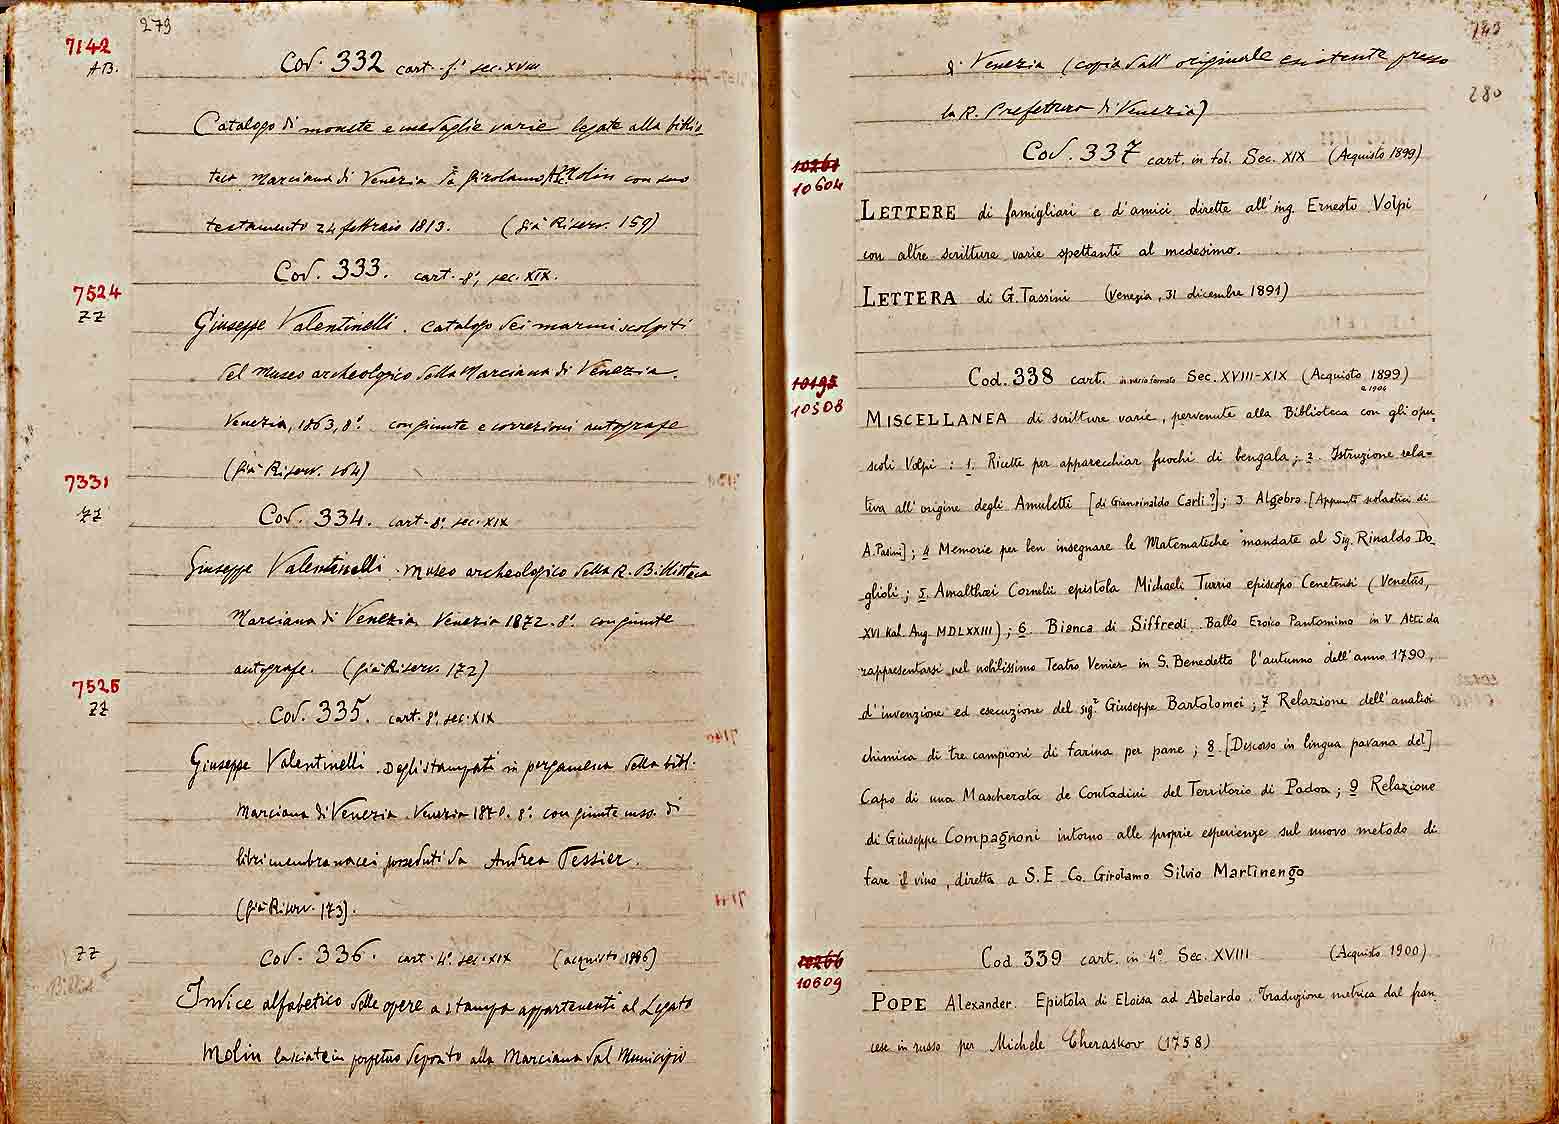 279
7142
AB.
Cod. 332 cart. fº sec. XVIII
Catalogo di monete e medaglie varie legate alla biblio
teca Marciana di Venezia da Girolamo Asc. Molin con suo
testamento 24 febbraio 1813. (già Riserv. 159)
7524
ZZ
Cod. 333. cart. 8º, sec. XIX.
Giuseppe Valentinelli. Catalogo dei marmi scolpiti
del Museo archeologico della Marciana di Venezia.
Venezia, 1863, 8º. con giunte e correzioni autografe
(già Riserv. 164)
7331
ZZ
Cod. 334. cart. 8º. sec. XIX
Giuseppe Valentinelli. Museo archeologico della R. Biblioteca
Marciana di Venezia Venezia 1872. 8º. con giunte
autografe. (già Riserv. 172)
7525
ZZ
Cod. 335. cart. 8º. sec. XIX
Giuseppe Valentinelli. Degli stampati in pergamena della bibl.
Marciana di Venezia. Venezia 1870. 8º. con giunte mss. di
libri membranacei posseduti da Andrea Tessier.
(già Riserv. 173).
ZZ
Cod. 336. cart. 4º. sec. XIX (acquisto 1896)
Indice alfabetico delle opere a stampa appartenenti al Legato
Molin lasciate in perpetuo deposito alla Marciana dal Municipio
280
d. Venezia (copia dall' originale esistente presso
la R. Prefettura di Venezia)
10261
10604
Cod. 337 cart. in fol. Sec. XIX (Acquisto 1899)
LETTERE di famigliari e d'amici dirette all'ing. Ernesto Volpi
con altre scritture varie spettanti al medesimo.
LETTERA di G. Tassini (Venezia, 31 dicembre 1891)
10195
10508
Cod. 338 cart. in vario formato Sec. XVIII-XIX (Acquisto 1899)
e 1904
MISCELLANEA di scritture varie, pervenute alla Biblioteca con gli opu
scoli Volpi : 1. Ricette per apparecchiar fuochi di bengala ; 2. Istruzione rela=
tiva all'origine degli Amuleti [di Gianrinaldo Carli?] ; 3. Algebra. [Appunti scolastici di
A. Pasini] ; 4 Memorie per ben insegnare le Matematiche mandate al Sig. Rinaldo Do_
glioli ; 5. Amalthæi Cornelii epistola Michaeli Turrio episcopo Cenetensi (Venetiis,
XVI Kal. Aug. MDLXXIII) ; 6. Bianca di Siffredi. Ballo Eroico Pantomimo in V Atti da
rappresentarsi nel nobilissimo Teatro Venier in S. Benedetto l'autunno dell'anno 1790,
d'invenzione ed esecuzione del sigr Giuseppe Bartolomei ; 7 Relazione dell'analisi
chimica di tre campioni di farina per pane ; 8. [Discorso in lingua pavana del]
Capo di una Mascherata de Contadini del Territorio di Padoa ; 9 Relazione
di Giuseppe Compagnoni intorno alle proprie esperienze sul nuovo metodo di
fare il vino, diretta a S. E. Co. Girolamo Silvio Martinengo
10266
10609
Cod 339 cart. in 4º. Sec. XVIII (Acquisto 1900)
POPE Alexander. Epistola di Eloisa ad Abelardo. Traduzione metrica dal fran_
cese in russo per Michele Cheraskov (1758)